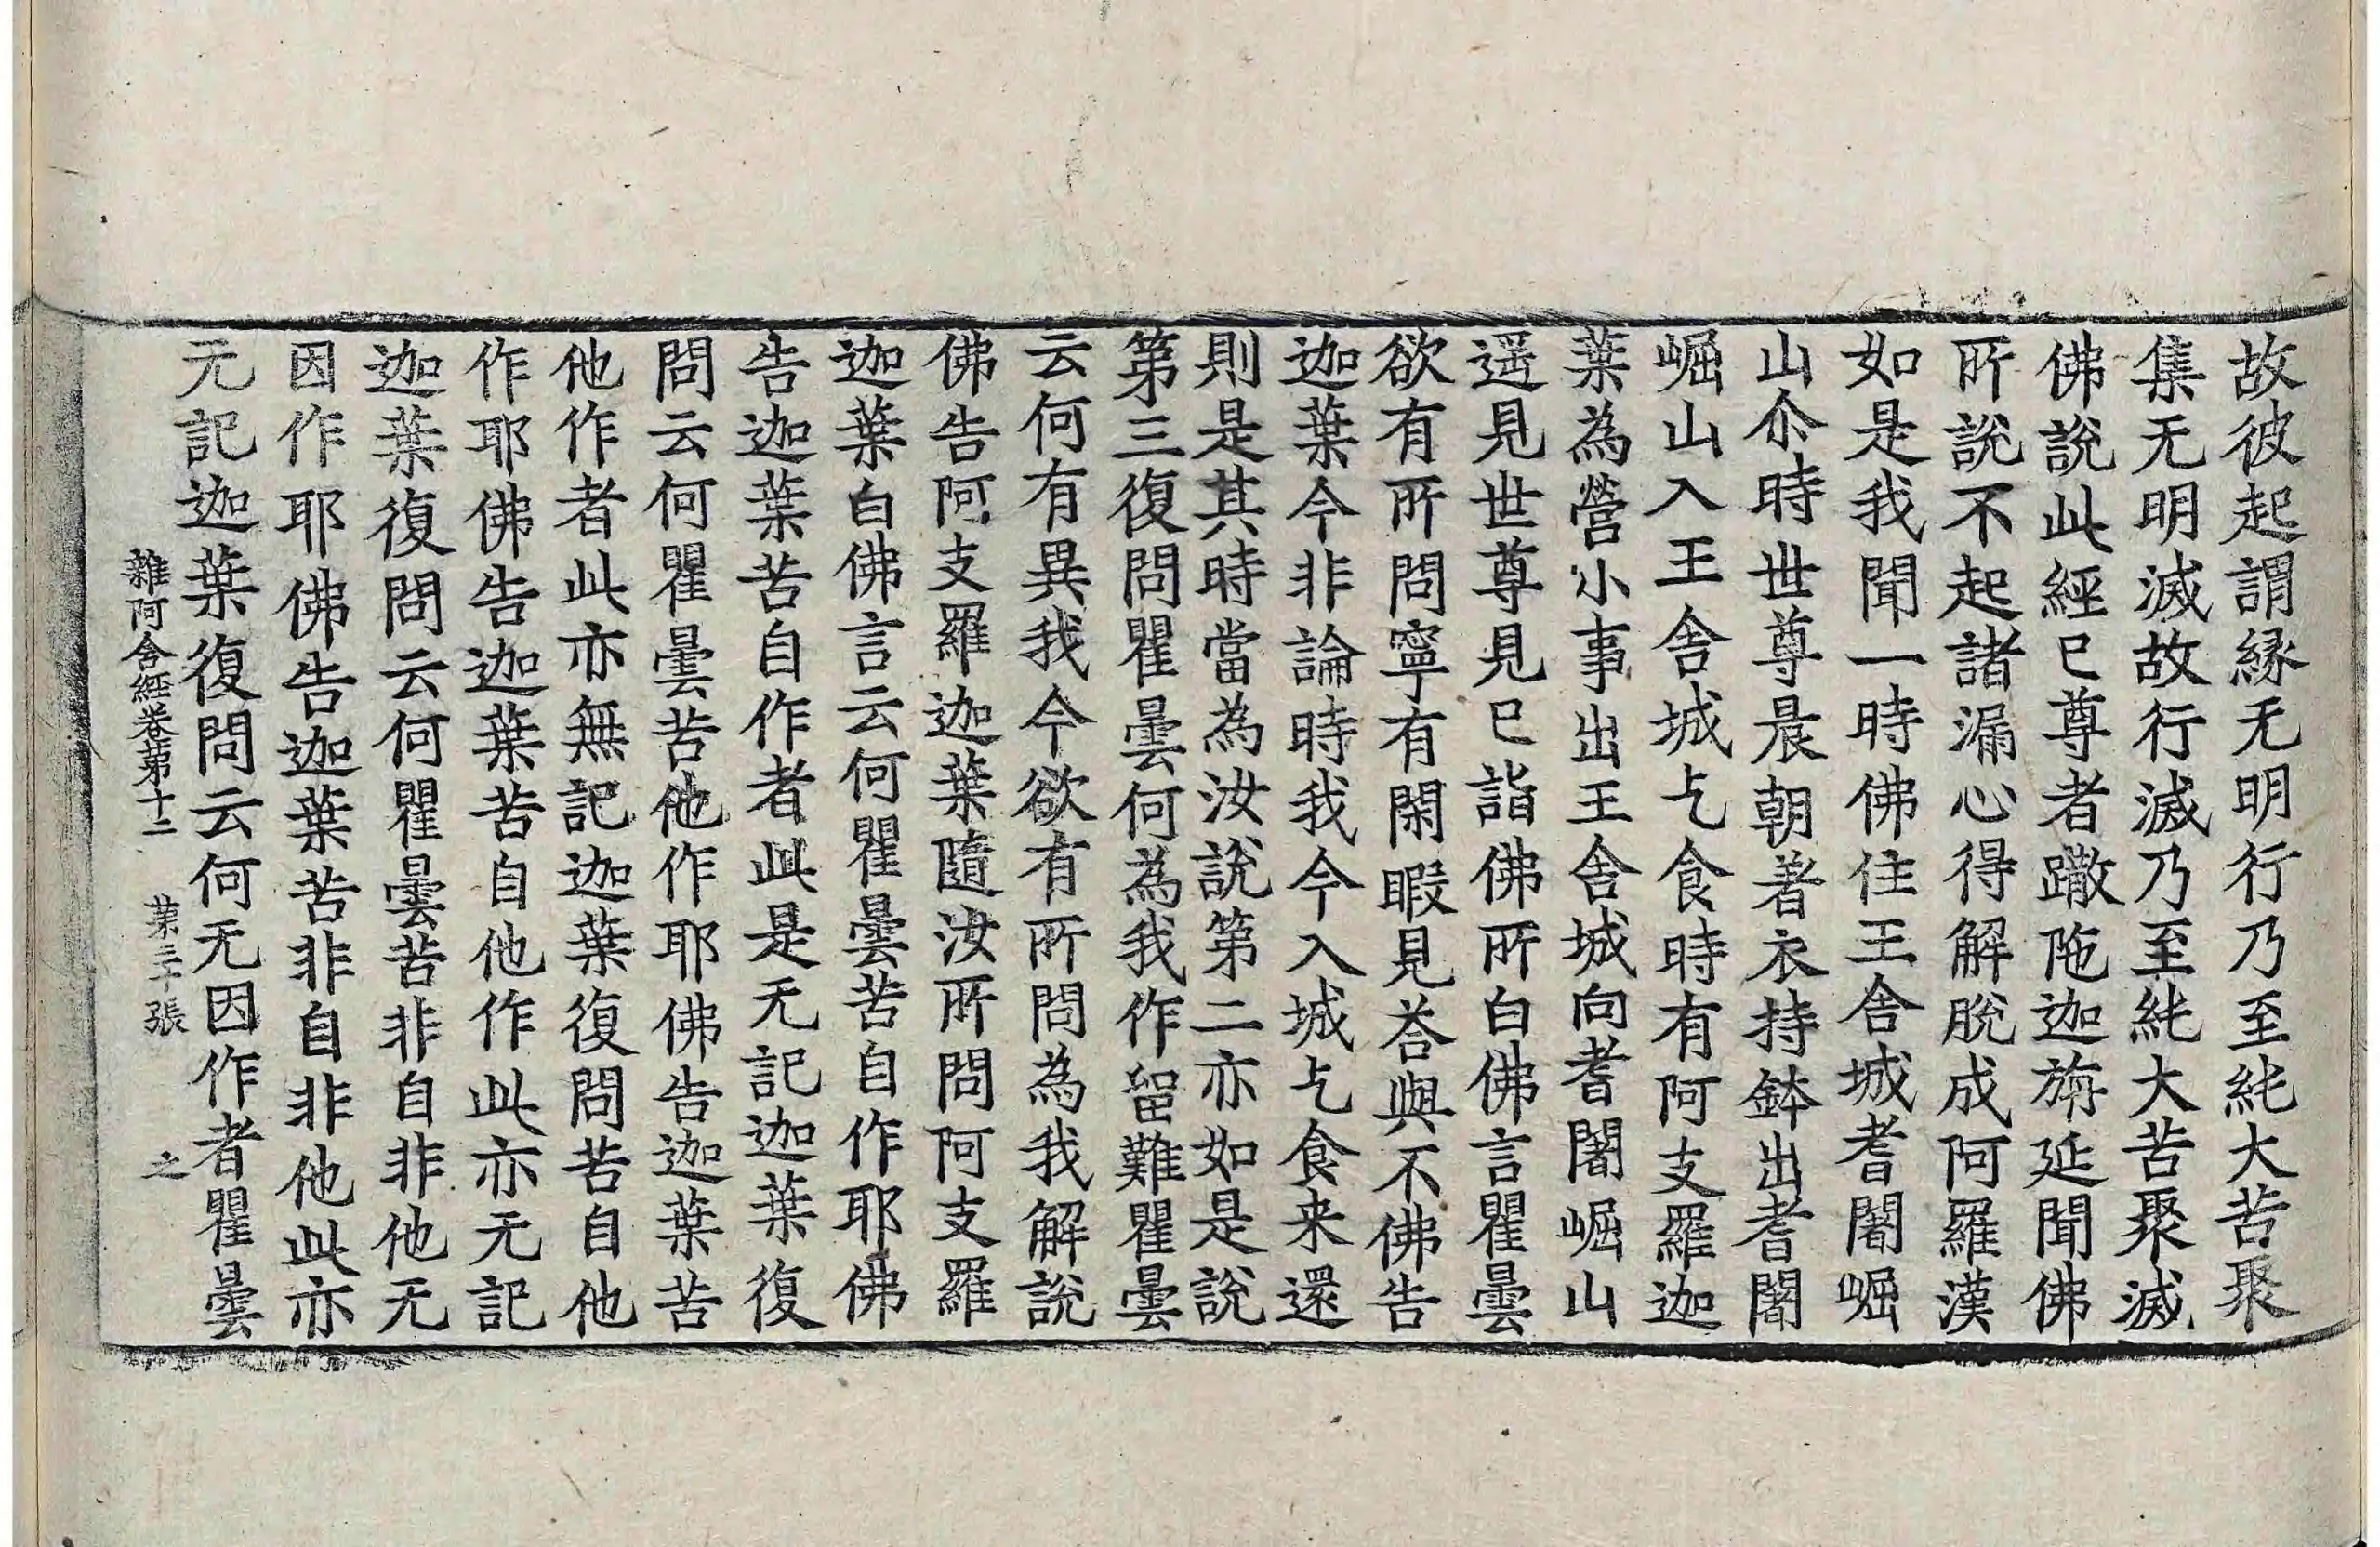 故彼起謂縁无明行乃至純大苦聚
集无明滅故行滅乃至純大苦聚滅
佛說此經已尊者𨅖陁迦旃延聞佛
所說不起諸漏心得解脫成阿羅漢
如是我聞一時佛住王舍城耆闍崛
山尒時世尊晨朝著衣持鉢出耆闍
崛山入王舍城乞食時有阿支羅迦
葉為營小事出王舍城向耆闍崛山
遥見世尊見已詣佛所白佛言瞿曇
欲有所問寧有閑暇見荅與不佛告
迦葉今非論時我今入城乞食来還
則是其時當為汝說第二亦如是說
第三復問瞿曇何為我作留難瞿曇
云何有異我今欲有所問為我解說
佛告阿支羅迦葉隨汝所問阿支羅
迦葉白佛言云何瞿曇苦自作耶佛
告迦葉苦自作者此是无記迦葉復
問云何瞿曇苦他作耶佛告迦葉苦
他作者此亦無記迦葉復問苦自他
作耶佛告迦葉苦自他作此亦无記
迦葉復問云何瞿曇苦非自非他无
因作耶佛告迦葉苦非自非他此亦
无記迦葉復問云何无因作者瞿曇
雜阿含經卷第十二 第三十張 之